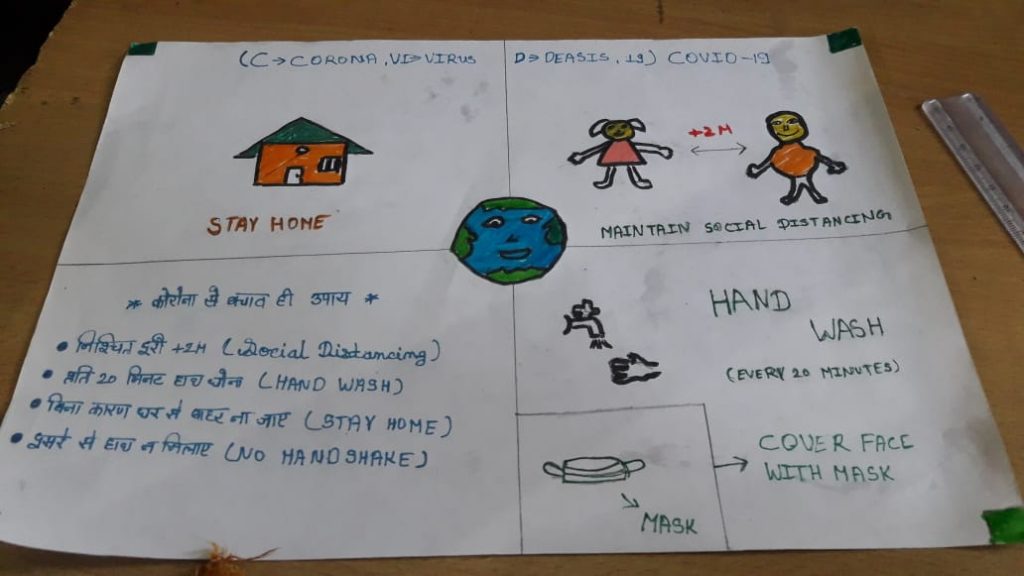 (C→CORONA, VI→VIRUS D→DEASIS, 19) COVID-19
STAY HOME
+2M
MAINTAIN SOCIAL DISTANCING
* कोरोना से बचाव ही उपाय *
• निश्चित दूरी +2M (Social Distancing)
• प्रति 20 मिनट हाथ धोना (HAND WASH)
• बिना कारण घर से बाहर ना जाए (STAY HOME)
• दूसरे से हाथ न मिलाए (NO HANDSHAKE)
HAND
WASH
(EVERY 20 MINUTES)
MASK
COVER FACE
WITH MASK